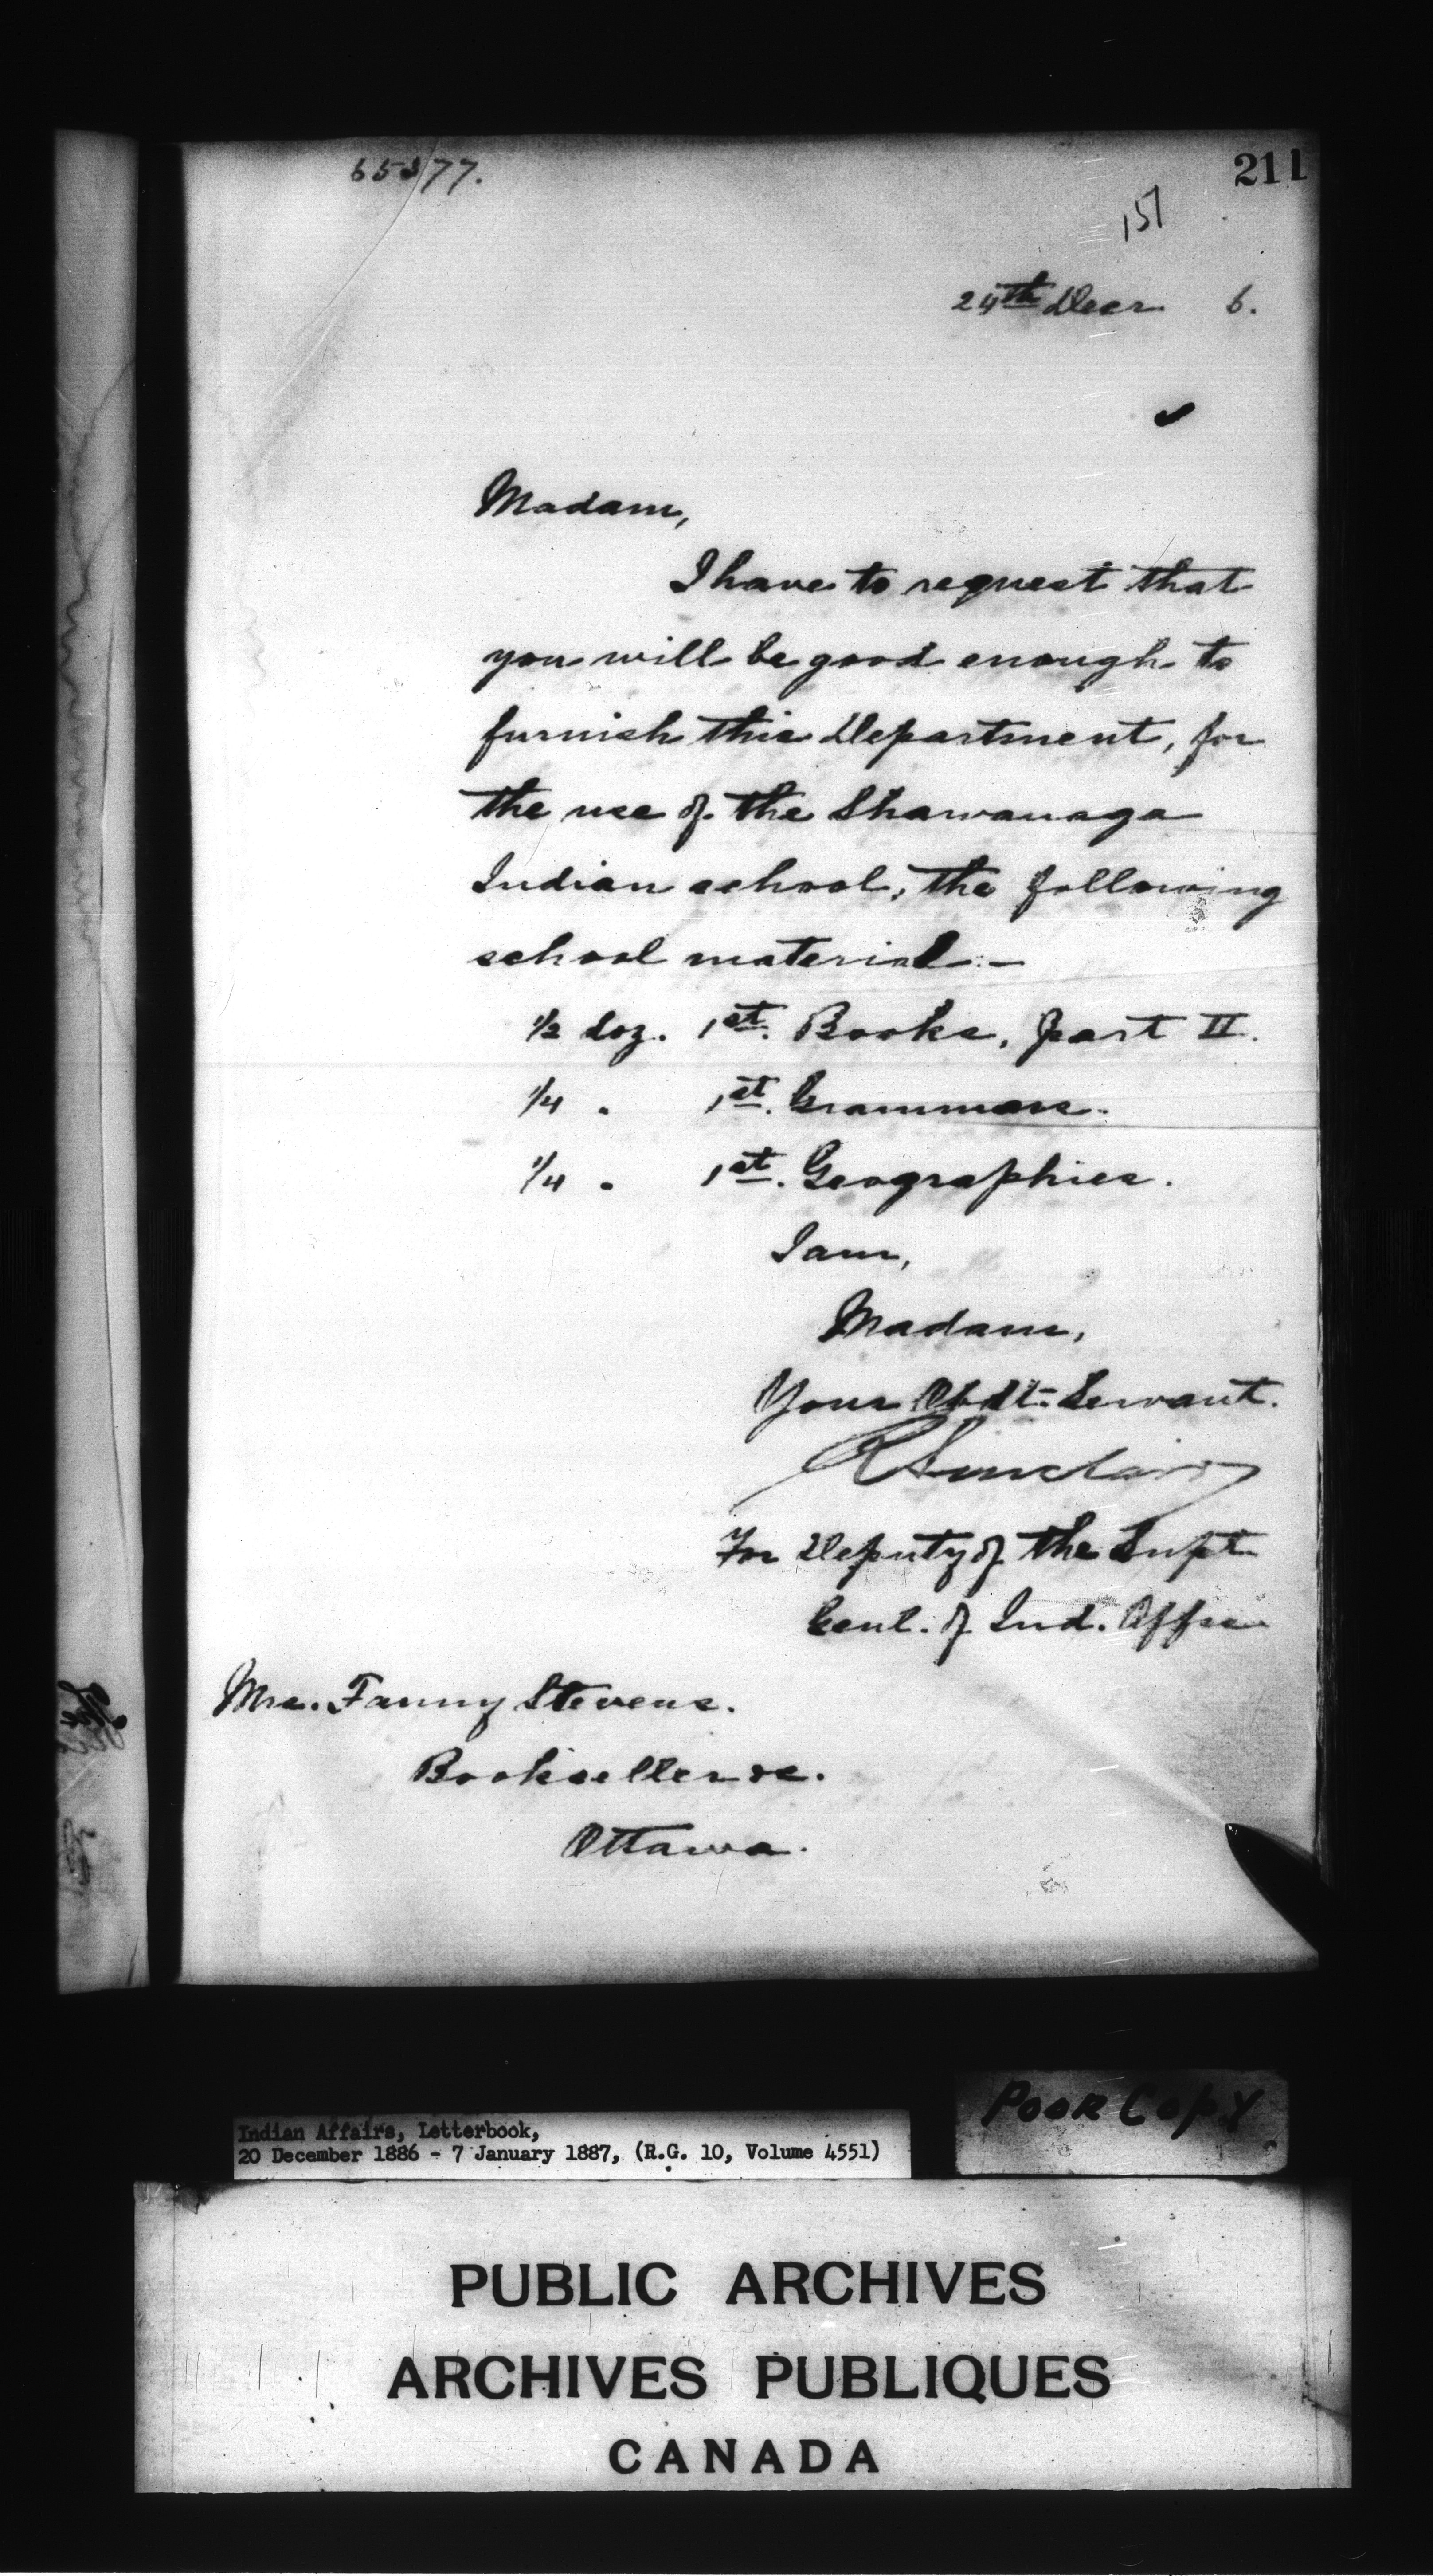 211
151
24th Decr 6.
Madam,
I have to request that
you will be good enough to
furnish this Department, for
the use of the Shawanaga
Indian school, the following
school material:-
1/2 doz. 1st. Books, part II.
1/4 " 1st. Grammars.
1/4 " 1st. Geographies.
I am,
Madam,
Your Obdt. Servant.
R Sinclair
For Deputy of the Supt
Genl. of Ind. Affrs
Mrs. Fanny Stevens.
Bookseller &c.
Ottawa.
POOR COPY
Indian Affairs, Letterbook,
20 December 1886 - 7 January 1887, (R.G. 10, Volume 4551)
PUBLIC ARCHIVES
ARCHIVES PUBLIQUES
CANADA